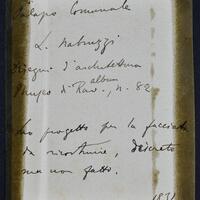 Palazzo Comunale
L. Nabruzzi
Disegni d'architettura
album
Museo di Rav., n. 82
Lo progetto per la facciata
da ricostruire, decreto
ma non fatto.
1831